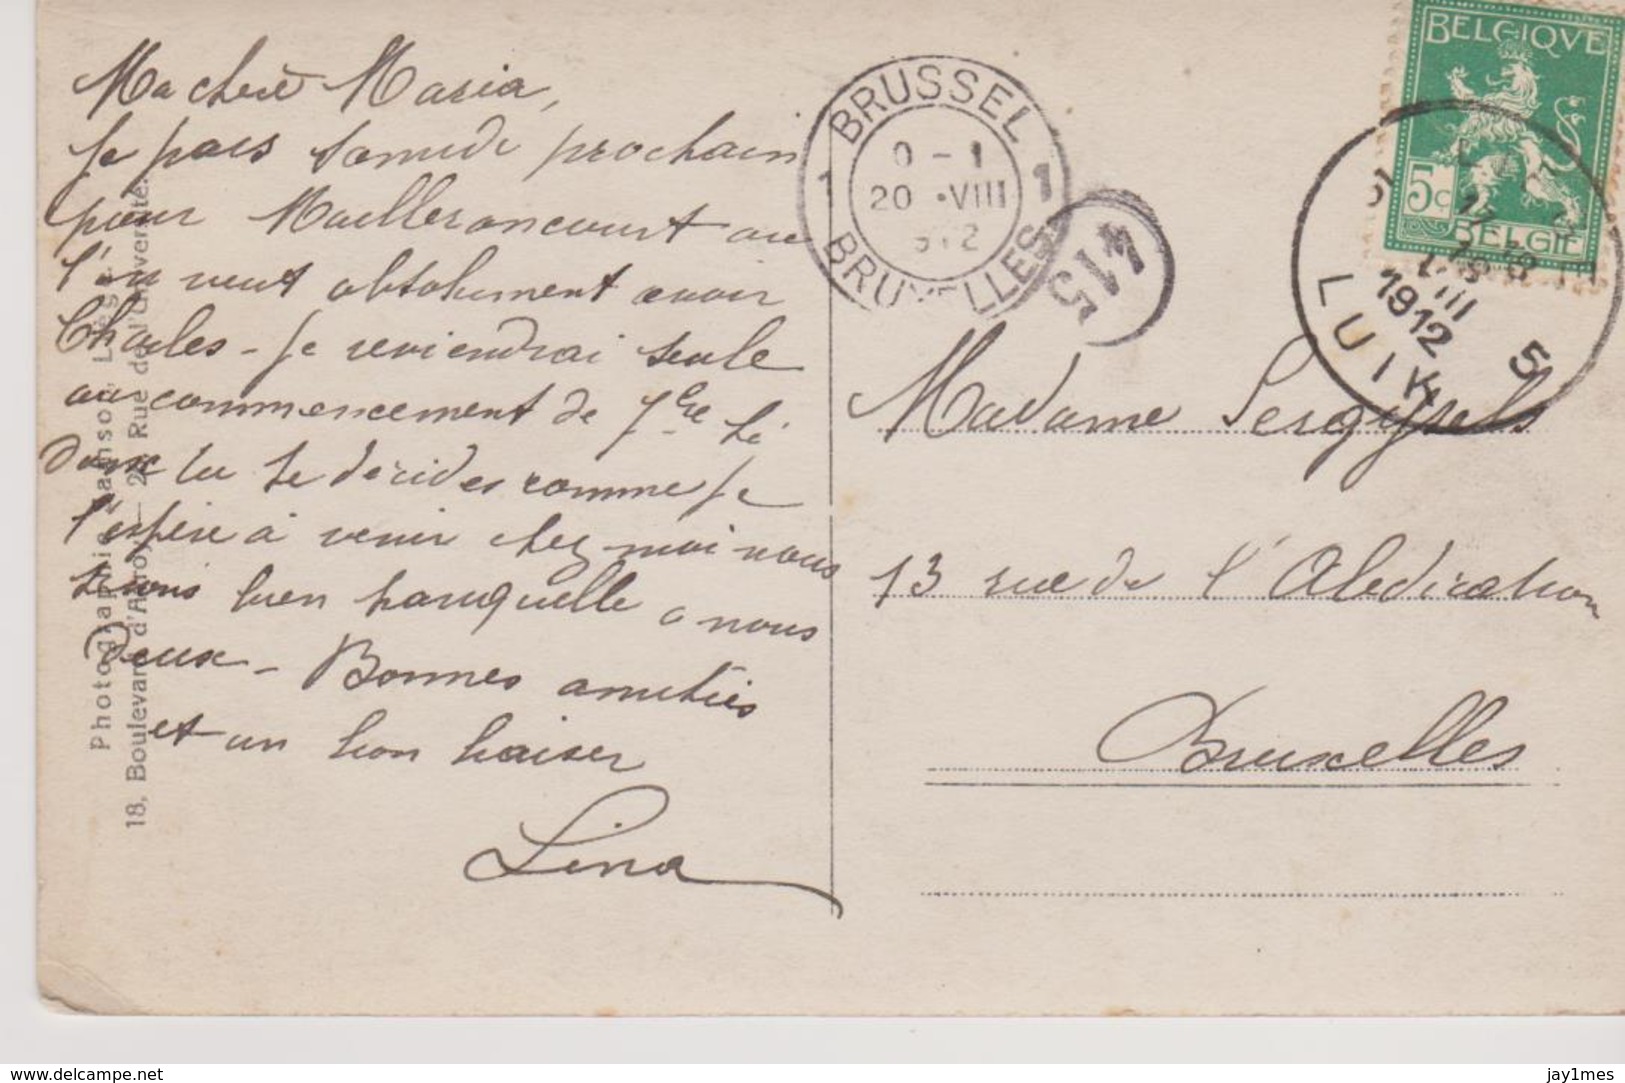 Ma chère Maria,
Je pars samedi prochain
pour Mailleroncourt ou
l'on veut absolument avoir
Charles - Je reviendrai seule
au commencement de 7bre Si
donc tu te décides comme je
l'espère à venir chez moi nous
serons bien tranquille a nous
deux - Bonnes amitiés
et un bon baiser
Lina
18, Boulevard d'Avroy - Rue de l'Université.
BRUSSEL
0 - 1
1 20 · VIII 1
BRUXELLES
415
BELGIQVE
5c
BELGIË
VIII
1912
5
LUIK
Madame Sergysels
13 rue de l'Abdication
Bruxelles
www.delcampe.net
jay1mes